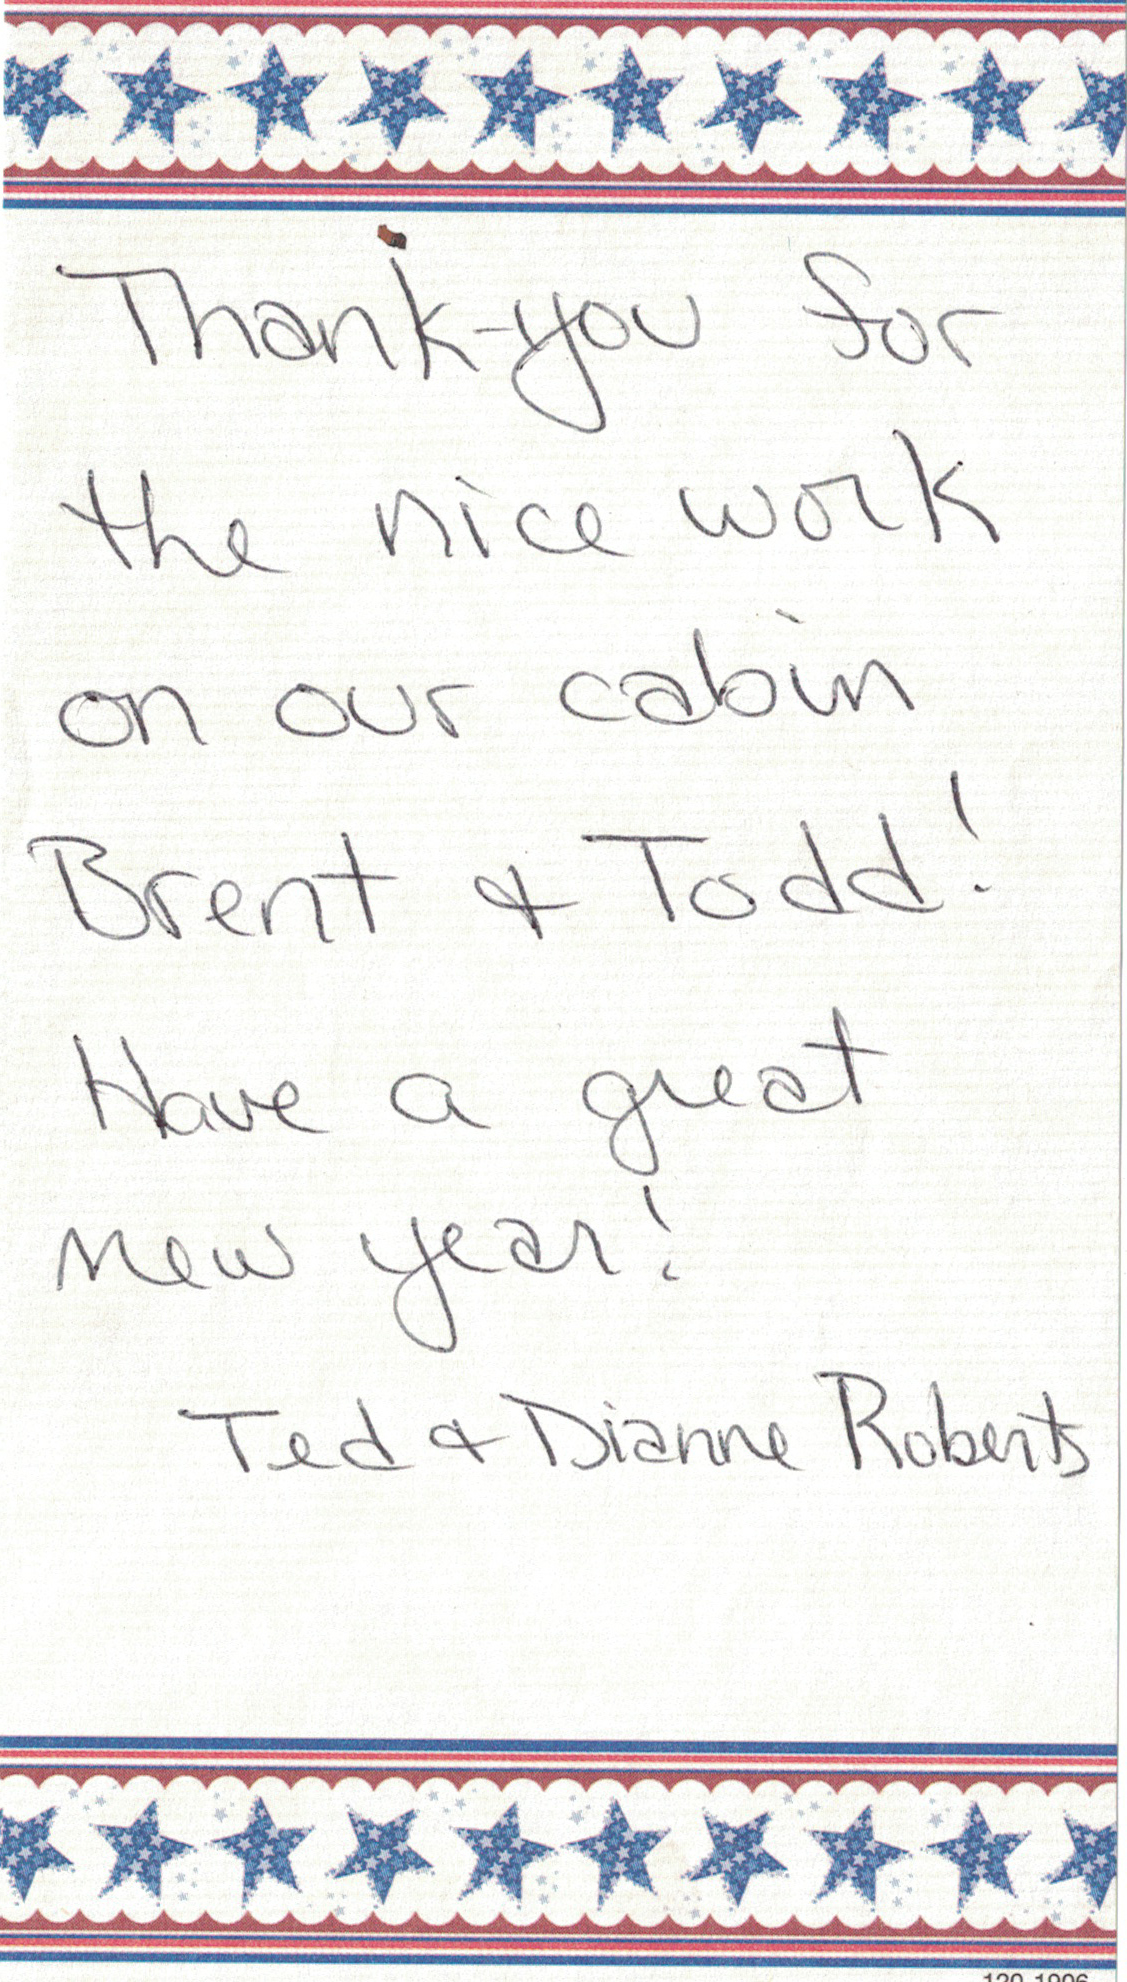 Thank-you for
the nice work
on our cabin
Brent & Todd!
Have a great
new year!
Ted & Dianne Roberts